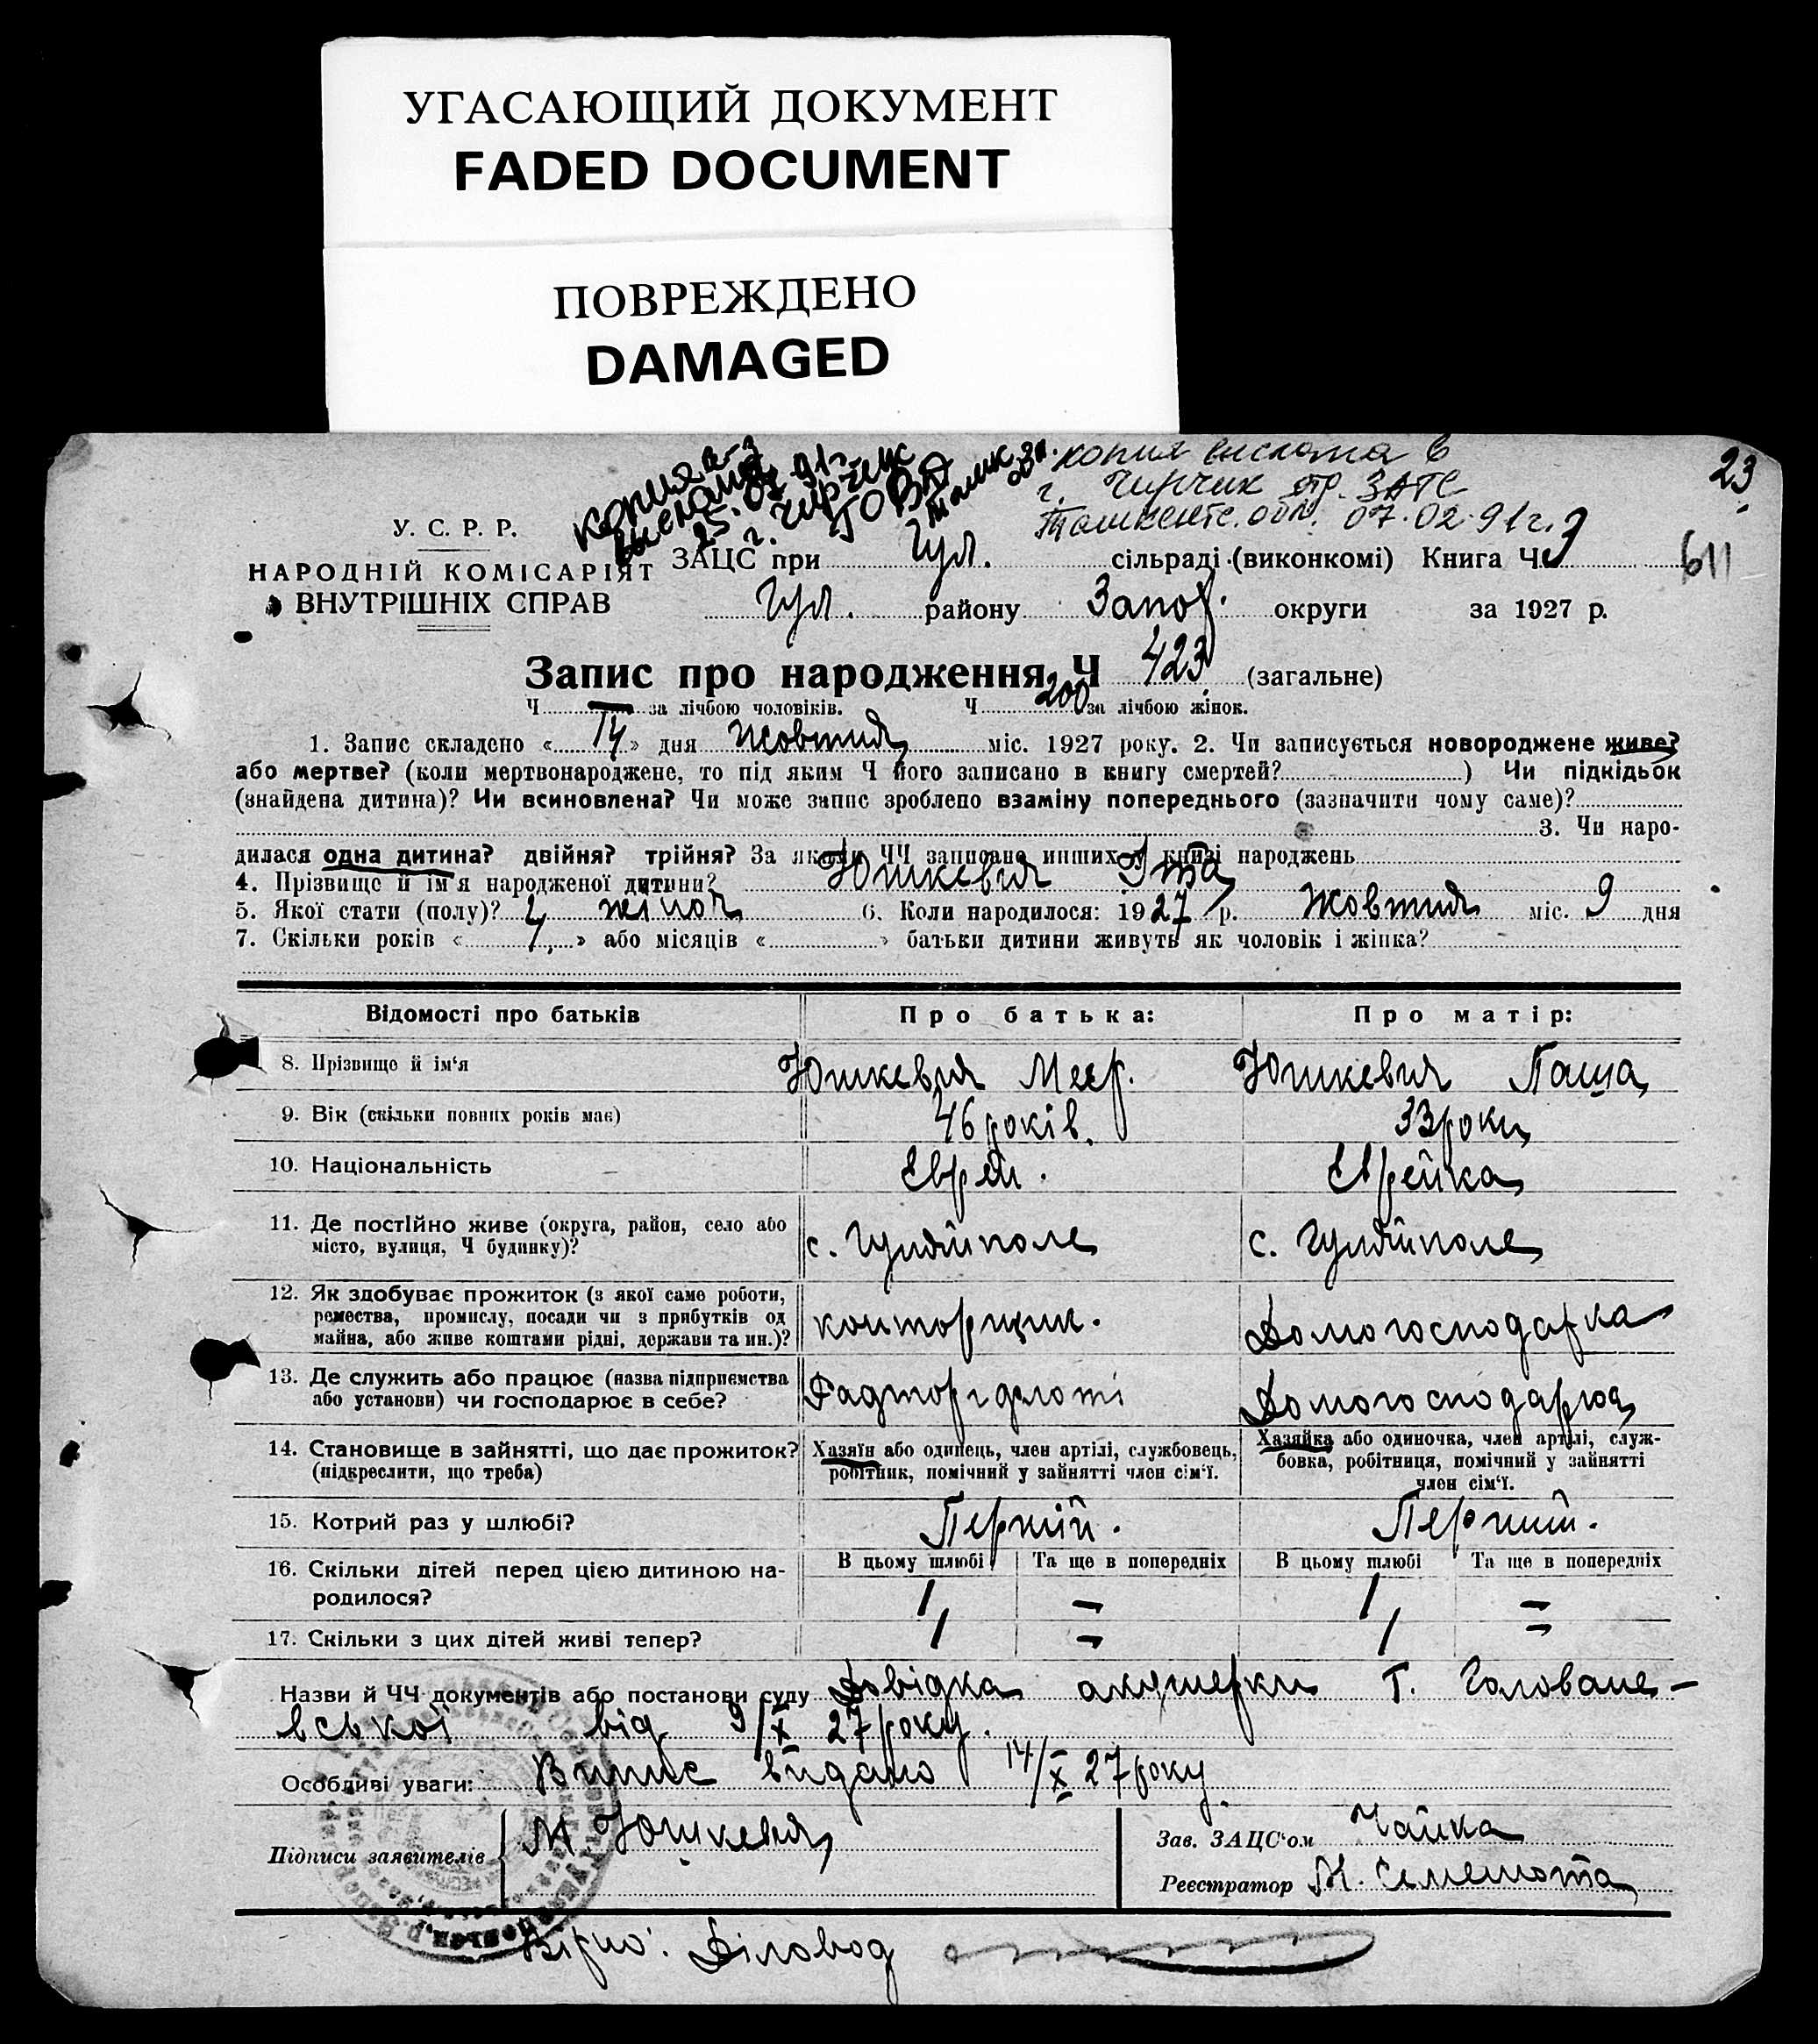 УГАСАЮЩИЙ ДОКУМЕНТ
FADED DOCUMENT
ПОВРЕЖДЕНО
DAMAGED
копия выслана в
г. Чирчик отр. ЗАГС
Ташкентс. обл. 07.02.91г.
23
611
копия
выслана
25.02.91г.
г. Чирчик
У. С. Р. Р.
НАРОДНІЙ КОМІСАРІЯТ
ВНУТРІШНІХ СПРАВ
ЗАЦС при Гул. сільраді (виконкомі) Книга Ч 3
Гул. району Запор. округи за 1927 р.
Запис про народження Ч 423 (загальне)
Ч — за лічбою чоловіків. Ч 200 за лічбою жінок.
1. Запис складено « 14 » дня Жовтня міс. 1927 року. 2. Чи записується новороджене живе?
або мертве? (коли мертвонароджене, то під яким Ч його записано в книгу смертей? ) Чи підкідьок
(знайдена дитина)? Чи всиновлена? Чи може запис зроблено взаміну попереднього (зазначити чому саме)?
3. Чи наро-
дилася одна дитина? двійня? трійня? За якими ЧЧ записано инших у книзі народжень
4. Прізвище й ім'я народженої дитини? Юшкевич Ита
5. Якої стати (полу)? жіноч 6. Коли народилося: 1927 р. Жовтня міс. 9 дня
7. Скільки років « » або місяців « » батьки дитини живуть як чоловік і жінка?
Відомості про батьків Про батька: Про матір:
8. Прізвище й ім'я Юшкевич Меер. Юшкевич Паша
9. Вік (скільки повних років має) 46 років. 33 роки
10. Національність Еврей. Еврейка
11. Де постійно живе (округа, район, село або
місто, вулиця, Ч будинку)? с. Гуляйполе с. Гуляйполе
12. Як здобуває прожиток (з якої саме роботи,
ремества, промислу, посади чи з прибутків од
майна, або живе коштами рідні, держави та ин.)? конторщик. Домогосподарка
13. Де служить або працює (назва підприємства
або установи) чи господарює в себе? Домогосподарює
14. Становище в зайнятті, що дає прожиток?
(підкреслити, що треба)
Хазяїн або одинець, член артілі, службовець,
робітник, помічний у зайнятті член сім'ї.
Хазяйка або одиночка, член артілі, служ-
бовка, робітниця, помічний у зайнятті
член сім'ї.
15. Котрий раз у шлюбі? Перший. Перший.
16. Скільки дітей перед цією дитиною на-
родилося?
В цьому шлюбі Та ще в попередніх В цьому шлюбі Та ще в попередніх
1 — 1 —
17. Скільки з цих дітей живі тепер? 1 — 1 —
Назви й ЧЧ документів або постанови суду Довідка акушерки Т. Головане-
вської від 9/X 27 року.
Особливі уваги: Випис видано 14/X 27 року
Підписи заявителів М Юшкевич
Зав. ЗАЦС'ом Чайка
Реєстратор М.
Вірно: Діловод